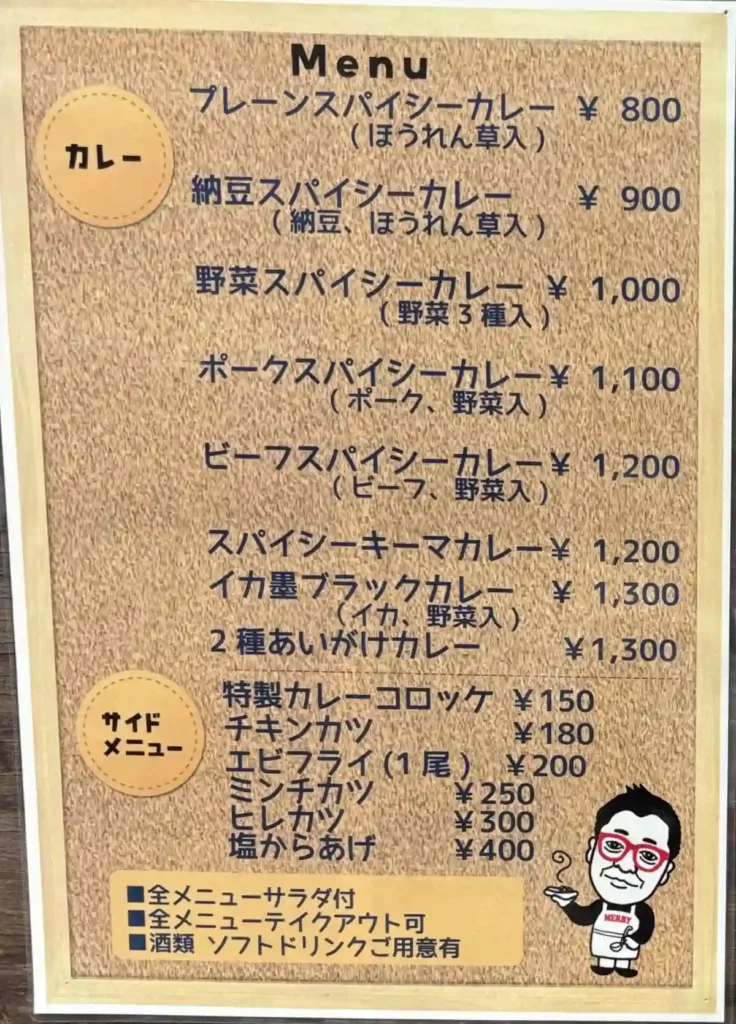 Menu
カレー
プレーンスパイシーカレー ¥ 800
(ほうれん草入)
納豆スパイシーカレー ¥ 900
(納豆、ほうれん草入)
野菜スパイシーカレー ¥ 1,000
(野菜3種入)
ポークスパイシーカレー ¥ 1,100
(ポーク、野菜入)
ビーフスパイシーカレー ¥ 1,200
(ビーフ、野菜入)
スパイシーキーマカレー ¥ 1,200
イカ墨ブラックカレー ¥ 1,300
(イカ、野菜入)
2種あいがけカレー ¥1,300
サイド
メニュー
特製カレーコロッケ ¥150
チキンカツ ¥180
エビフライ(1尾) ¥200
ミンチカツ ¥250
ヒレカツ ¥300
塩からあげ ¥400
■全メニューサラダ付
■全メニューテイクアウト可
■酒類 ソフトドリンクご用意有
MERRY